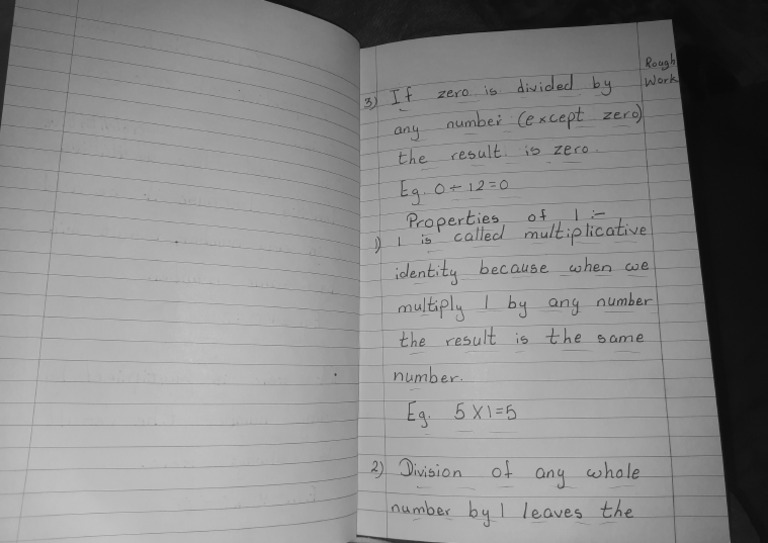 Rough
Work
3) If zero is divided by
any number (except zero)
the result is zero.
Eg. 0 ÷ 12 = 0
Properties of 1 :-
1) 1 is called multiplicative
identity because when we
multiply 1 by any number
the result is the same
number.
Eg. 5 X 1 = 5
2) Division of any whole
number by 1 leaves the